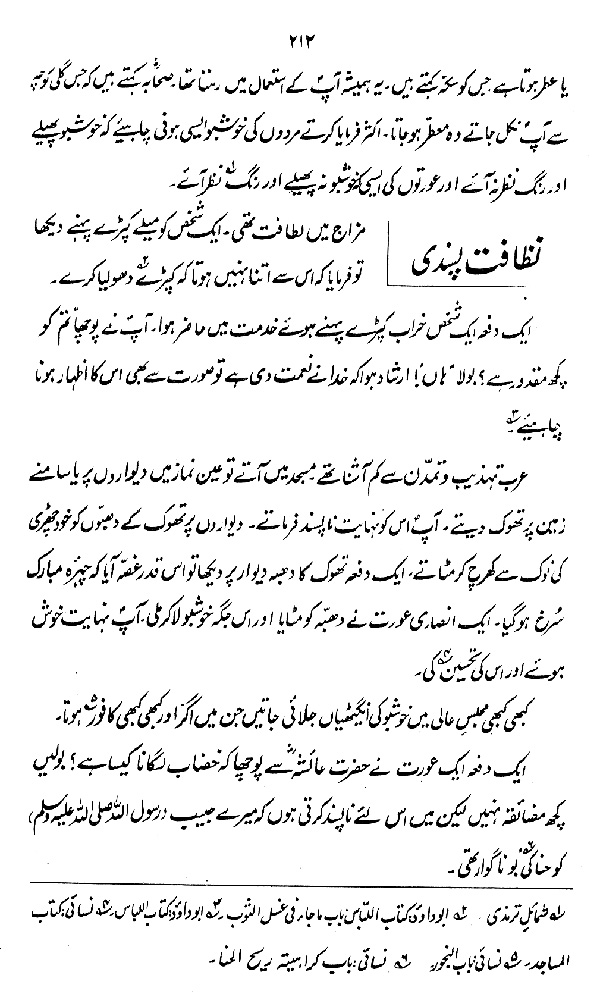 ۲۱۲
یا عطر ہوتا ہے جس کو سکہ کہتے ہیں۔ یہ ہمیشہ آپؐ کے استعمال میں رہتا تھا۔ صحابہؓ کہتے ہیں کہ جس گلی کوچہ
سے آپؐ نکل جاتے وہ معطر ہو جاتا۔ اکثر فرمایا کرتے مردوں کی خوشبو ایسی ہونی چاہیئے کہ خوشبو پھیلے
اور رنگ نظر نہ آئے اور عورتوں کی ایسی کہ خوشبو نہ پھیلے اور رنگ نظر آئے۔
نظافت پسندی
مزاج میں لطافت تھی۔ ایک شخص کو میلے کپڑے پہنے دیکھا
تو فرمایا کہ اس سے اتنا نہیں ہوتا کہ کپڑے دھو لیا کرے۔
ایک دفعہ ایک شخص خراب کپڑے پہنے ہوئے خدمت میں حاضر ہوا۔ آپؐ نے پوچھا تم کو
کچھ مقدور ہے؟ بولا "ہاں"! ارشاد ہوا کہ خدا نے نعمت دی ہے تو صورت سے بھی اس کا اظہار ہونا
چاہیئے۔
عرب تہذیب و تمدّن سے کم آشنا تھے مسجد میں آتے تو عین نماز میں دیواروں پر یا سامنے
زمین پر تھوک دیتے۔ آپؐ اس کو نہایت ناپسند فرماتے۔ دیواروں پر تھوک کے دھبوں کو خود چھڑی
کی نوک سے کھرچ کر مٹاتے۔ ایک دفعہ تھوک کا دھبہ دیوار پر دیکھا تو اس قدر غصہ آیا کہ چہرہ مبارک
سُرخ ہو گیا۔ ایک انصاری عورت نے دھبّہ کو مٹایا اور اس جگہ خوشبو لا کر ملی۔ آپؐ نہایت خوش
ہوئے اور اس کی تحسین کی۔
کبھی کبھی مجلسِ عالی میں خوشبو کی انگیٹھیاں جلائی جاتیں جن میں اگر اور کبھی کبھی کافور ہوتا۔
ایک دفعہ ایک عورت نے حضرت عائشہؓ سے پوچھا کہ خضاب لگانا کیسا ہے؟ بولیں
کچھ مضائقہ نہیں لیکن میں اس لئے ناپسند کرتی ہوں کہ میرے حبیب (رسول اللہ صلی اللہ علیہ وسلم)
کو حنا کی بو ناگوار تھی۔
۱؎ شمائل ترمذی ۲؎ ابوداؤد کتاب اللباس باب ما جاء فی غسل الثوب ۳؎ ابوداؤد کتاب اللباس ۴؎ نسائی کتاب
المساجد۔ ۵؎ نسائی باب البخور ۶؎ نسائی باب کراہیۃ ریح الحنا۔